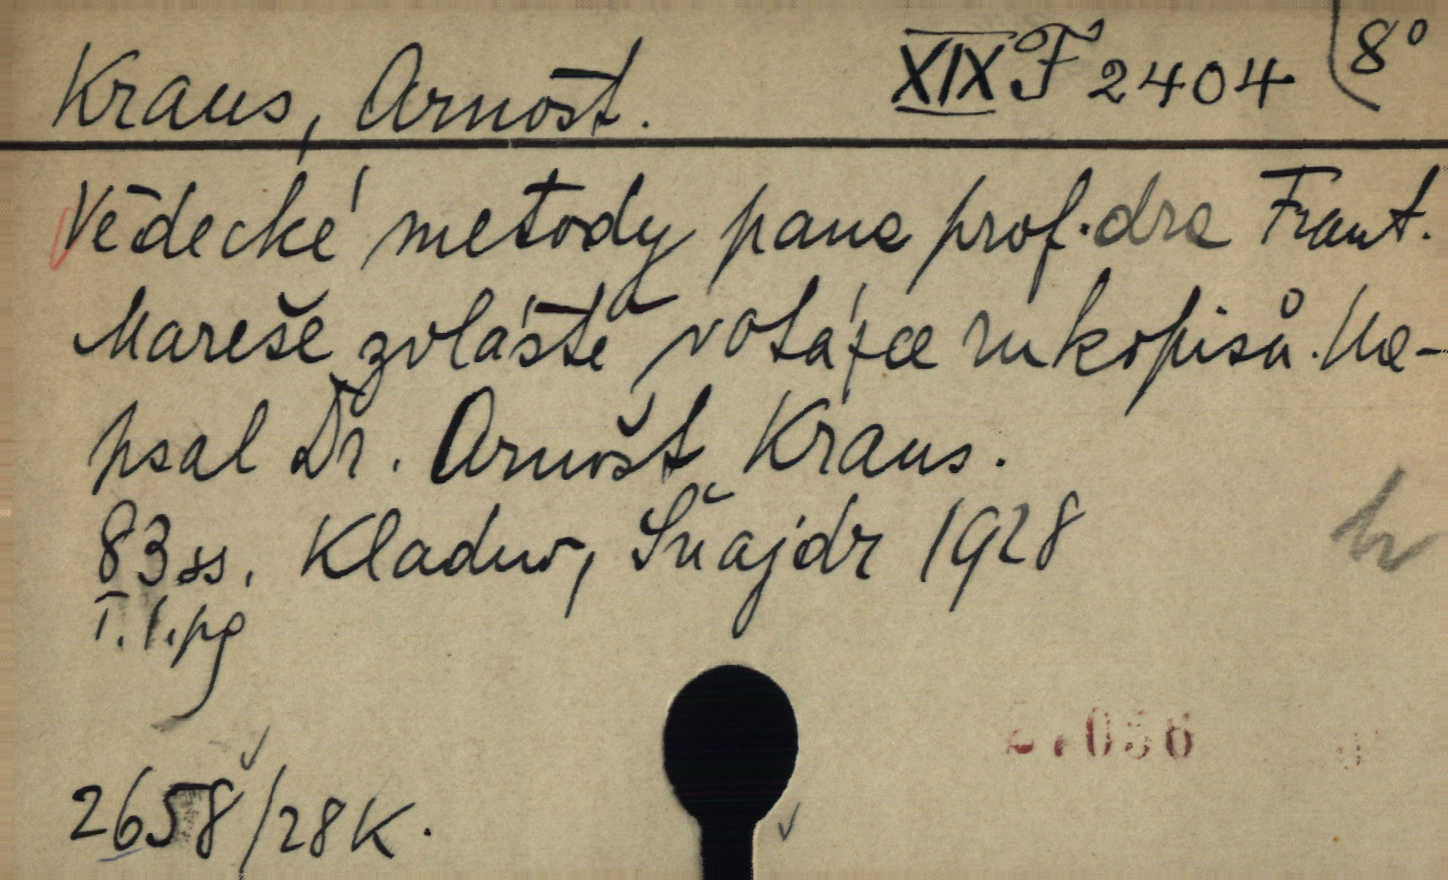 Kraus, Arnošt. XIX F 2404 8°
Vědecké metody pana prof. dra Frant.
Mareše zvláště v otázce rukopisů. Na-
psal Dr. Arnošt Kraus.
83 ss. Kladno, Šnajdr 1928
I. 1. pg
2658/28 K.